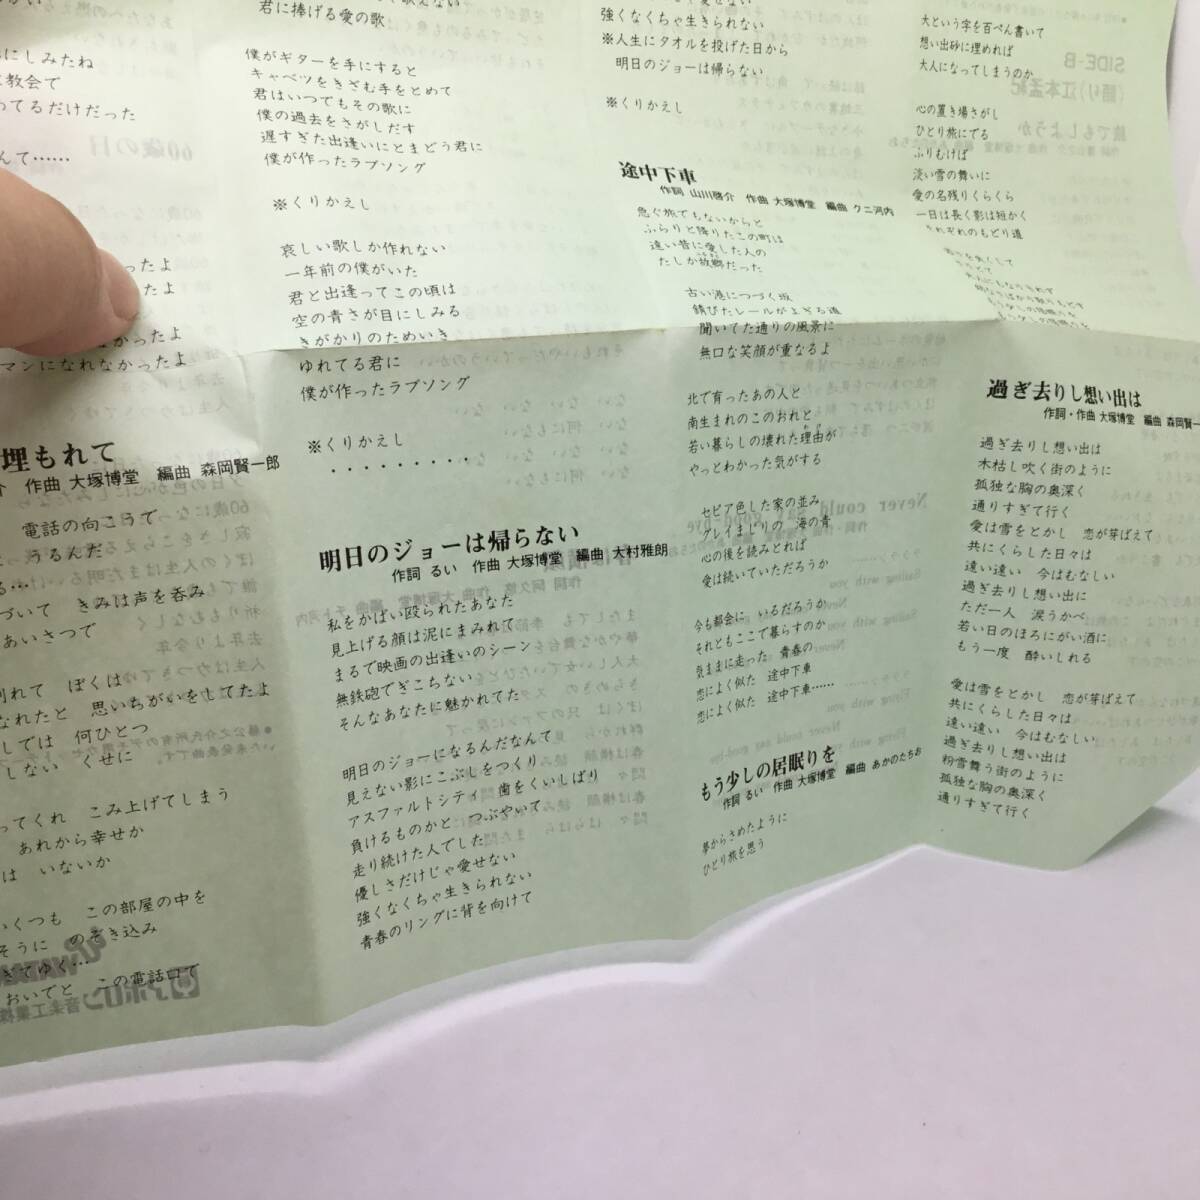 にしみたね
教会で
ってるだけだった
んて……
ったよ
たよ
かったよ
マンになれなかったよ
埋もれて
介　作曲 大塚博堂　編曲 森岡賢一郎
電話の向こうで
うるんだ
る…
づいて　きみは声を呑み
あいさつで
別れて　ぼくは
なれたと　思いちがいをしてたよ
しでは　何ひとつ
しない　くせに
ってくれ　こみ上げてしまう
あれから幸せか
は　いないか
いくつも　この部屋の中を
そうに　のぞき込み
きてゆく…
おいでと　この電話口で
君に捧げる愛の歌
僕がギターを手にすると
キャベツをきざむ手をとめて
君はいつでもその歌に
僕の過去をさがしだす
遅すぎた出逢いにとまどう君に
僕が作ったラブソング
※くりかえし
哀しい歌しか作れない
一年前の僕がいた
君と出逢ってこの頃は
空の青さが目にしみる
きがかりのためいき
ゆれてる君に
僕が作ったラブソング
※くりかえし
・・・・・・・・・・
明日のジョーは帰らない
作詞 るい　作曲 大塚博堂　編曲 大村雅朗
私をかばい殴られたあなた
見上げる顔は泥にまみれて
まるで映画の出逢いのシーン
無鉄砲でぎこちない
そんなあなたに魅かれてた
明日のジョーになるんだなんて
見えない影にこぶしをつくり
アスファルトシティ　歯をくいしばり
負けるものかと　つぶやいて
走り続けた人でした
優しさだけじゃ愛せない
強くなくちゃ生きられない
青春のリングに背を向けて
強くなくちゃ生きられない
※人生にタオルを投げた日から
明日のジョーは帰らない
※くりかえし
途中下車
作詞 山川啓介　作曲 大塚博堂　編曲 クニ河内
急ぐ旅でもないからと
ふらりと降りたこの町は
遠い昔に愛した人の
たしか故郷だった
古い港につづく坂
錆びたレールがよぎる道
聞いてた通りの風景に
無口な笑顔が重なるよ
北で育ったあの人と
南生まれのこのおれと
若い暮らしの壊れた理由が
やっとわかった気がする
セピア色した家の並み
グレイまじりの　海の青
心の後を読みとれば
愛は続いていただろうか
今も都会に　いるだろうか
それともここで暮らすのか
気ままに走った　青春の
恋によく似た　途中下車
恋によく似た　途中下車……
もう少しの居眠りを
作詞 るい　作曲 大塚博堂　編曲 あかのたちお
夢からさめたように
ひとり旅を思う
大という字を百ぺん書いて
想い出砂に埋めれば
大人になってしまうのか
心の置き場さがし
ひとり旅にでる
ふりむけば
淡い雪の舞いに
愛の名残りくらくら
一日は長く影は短かく
それぞれのもどり道
過ぎ去りし想い出は
作詞・作曲 大塚博堂　編曲 森岡賢一
過ぎ去りし想い出は
木枯し吹く街のように
孤独な胸の奥深く
通りすぎて行く
愛は雪をとかし　恋が芽ばえて
共にくらした日々は
遠い遠い　今はむなしい
過ぎ去りし想い出に
ただ一人　涙うかべ
若い日のほろにがい酒に
もう一度　酔いしれる
愛は雪をとかし　恋が芽ばえて
共にくらした日々は
遠い遠い　今はむなしい
過ぎ去りし想い出は
粉雪舞う街のように
孤独な胸の奥深く
通りすぎて行く